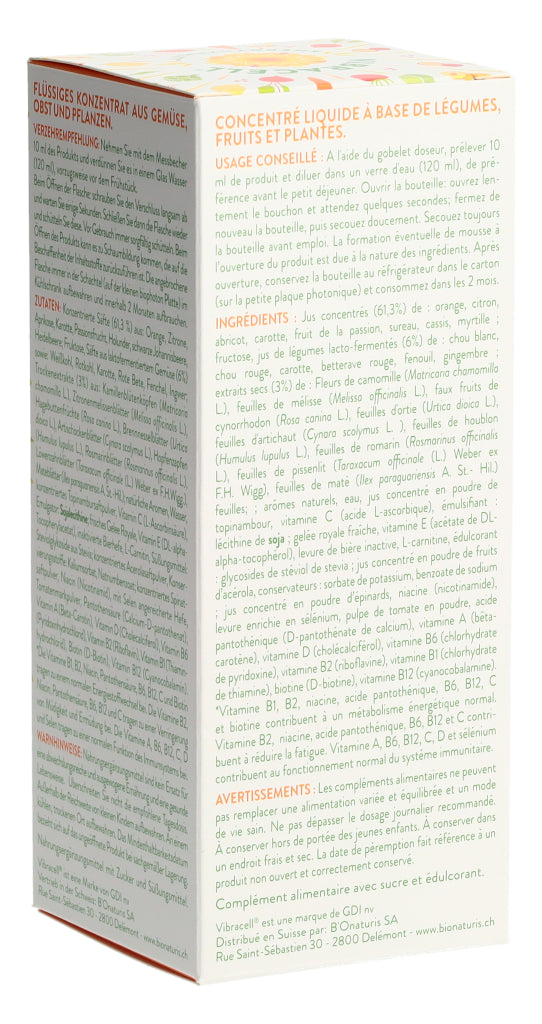 VIBRACELL
FLÜSSIGES KONZENTRAT AUS GEMÜSE,
OBST UND PFLANZEN.
VERZEHREMPFEHLUNG: Nehmen Sie mit dem Messbecher
10 ml des Produkts und verdünnen Sie es in einem Glas Wasser
(120 ml), vorzugsweise vor dem Frühstück.
Beim Öffnen der Flasche: schrauben Sie den Verschluss langsam ab
und warten Sie einige Sekunden. Schließen Sie dann die Flasche wieder
und schütteln Sie diese. Vor Gebrauch immer sorgfältig schütteln. Beim
Öffnen des Produkts kann es zu Schaumbildung kommen, die auf die
Beschaffenheit der Inhaltsstoffe zurückzuführen ist. Die angebrochene
Flasche immer in der Schachtel (auf der kleinen biophoton Platte) im
Kühlschrank aufbewahren und innerhalb 2 Monaten aufbrauchen.
ZUTATEN: Konzentrierte Säfte (61,3 %) aus: Orange, Zitrone,
Aprikose, Karotte, Passionsfrucht, Holunder, schwarze Johannisbeere,
Heidelbeere; Fruktose, Säfte aus laktofermentiertem Gemüse (6%)
sowie: Weißkohl, Rotkohl, Karotte, Rote Bete, Fenchel, Ingwer;
Trockenextrakte (3%) aus: Kamillenblütenköpfen (Matricaria
chamomilla L.), Zitronenmelissenblätter (Melissa officinalis L.),
Hagebuttenfrüchte (Rosa canina L.), Brennnesselblätter (Urtica
dioica L.), Artischockenblätter (Cynara scolymus L.), Hopfenzapfen
(Humulus lupulus L.), Rosmarinblätter (Rosmarinus officinalis L.),
Löwenzahnblätter (Taraxacum officinale (L.) Weber ex F.H.Wigg),
Mateblätter (Ilex paraguariensis A. St.-Hil.) natürliche Aromen, Wasser,
konzentriertes Topinambursaftpulver, Vitamin C (L-Ascorbinsäure),
Emulgator: Sojalecithine; frisches Gelee Royale, Vitamin E (DL-alpha-
Tocopherylacetat), inaktivierte Bierhefe, L-Carnitin, Süßungsmittel:
Steviolglycoside aus Stevia; konzentriertes Acerolasaftpulver, Konser-
vierungsstoffe: Kaliumsorbat, Natriumbenzoat; konzentriertes Spinat-
saftpulver, Niacin (Nicotinamid), mit Selen angereicherte Hefe,
Tomatenmarkpulver, Pantothensäure (Calcium-D-pantothenat),
Vitamin A (Beta-Carotin), Vitamin D (Cholecalciferol), Vitamin B6
(Pyridoxinhydrochlorid), Vitamin B2 (Riboflavin), Vitamin B1 (Thiamin-
hydrochlorid), Biotin (D-Biotin), Vitamin B12 (Cyanocobalamin).
*Die Vitamine B1, B2, Niacin, Pantothensäure, B6, B12, C und Biotin
tragen zu einem normalen Energiestoffwechsel bei. Die Vitamine B2,
Niacin, Pantothensäure, B6, B12 und C tragen zu einer Verringerung
von Müdigkeit und Ermüdung bei. Die Vitamine A, B6, B12, C, D
und Selen tragen zu einer normalen Funktion des Immunsystems bei.
WARNHINWEISE: Nahrungsergänzungsmittel sind kein Ersatz für
eine abwechslungsreiche und ausgewogene Ernährung und eine gesunde
Lebensweise. Überschreiten Sie nicht die empfohlene Tagesdosis.
Außerhalb der Reichweite von kleinen Kindern aufbewahren. An einem
kühlen, trockenen Ort aufbewahren. Das Mindesthaltbarkeitsdatum
bezieht sich auf das ungeöffnete Produkt bei sachgemäßer Lagerung.
Nahrungsergänzungsmittel mit Zucker und Süßungsmittel.
Vibracell® ist eine Marke von GDI nv
Vertrieb in der Schweiz: By B'Onaturis SA
Rue Saint-Sébastien 30 - 2800 Delémont - www.bionaturis.ch
CONCENTRÉ LIQUIDE À BASE DE LÉGUMES,
FRUITS ET PLANTES.
USAGE CONSEILLÉ : A l'aide du gobelet doseur, prélever 10
ml de produit et diluer dans un verre d'eau (120 ml), de pré-
férence avant le petit déjeuner. Ouvrir la bouteille: ouvrez len-
tement le bouchon et attendez quelques secondes; fermez de
nouveau la bouteille, puis secouez doucement. Secouez toujours
la bouteille avant emploi. La formation éventuelle de mousse à
l'ouverture du produit est due à la nature des ingrédients. Après
ouverture, conservez la bouteille au réfrigérateur dans le carton
(sur la petite plaque photonique) et consommez dans les 2 mois.
INGRÉDIENTS : Jus concentrés (61,3%) de : orange, citron,
abricot, carotte, fruit de la passion, sureau, cassis, myrtille ;
fructose, jus de légumes lacto-fermentés (6%) de : chou blanc,
chou rouge, carotte, betterave rouge, fenouil, gingembre ;
extraits secs (3%) de : Fleurs de camomille (Matricaria chamomilla
L.), feuilles de mélisse (Melissa officinalis L.), faux fruits de
cynorrhodon (Rosa canina L.), feuilles d'ortie (Urtica dioica L.),
feuilles d'artichaut (Cynara scolymus L. ), feuilles de houblon
(Humulus lupulus L.), feuilles de romarin (Rosmarinus officinalis
L.), feuilles de pissenlit (Taraxacum officinale (L.) Weber ex
F.H. Wigg), feuilles de maté (Ilex paraguariensis A. St.- Hil.)
feuilles; ; arômes naturels, eau, jus concentré en poudre de
topinambour, vitamine C (acide L-ascorbique), émulsifiant :
lécithine de soja ; gelée royale fraîche, vitamine E (acétate de DL-
alpha-tocophérol), levure de bière inactive, L-carnitine, édulcorant
: glycosides de stéviol de stevia ; jus concentré en poudre de fruits
d'acérola, conservateurs : sorbate de potassium, benzoate de sodium
; jus concentré en poudre d'épinards, niacine (nicotinamide),
levure enrichie en sélénium, pulpe de tomate en poudre, acide
pantothénique (D-pantothénate de calcium), vitamine A (bêta-
carotène), vitamine D (cholécalciférol), vitamine B6 (chlorhydrate
de pyridoxine), vitamine B2 (riboflavine), vitamine B1 (chlorhydrate
de thiamine), biotine (D-biotine), vitamine B12 (cyanocobalamine).
*Vitamine B1, B2, niacine, acide pantothénique, B6, B12, C
et biotine contribuent à un métabolisme énergétique normal.
Vitamine B2, niacine, acide pantothénique, B6, B12 et C contri-
buent à réduire la fatigue. Vitamine A, B6, B12, C, D et sélénium
contribuent au fonctionnement normal du système immunitaire.
AVERTISSEMENTS : Les compléments alimentaires ne peuvent
pas remplacer une alimentation variée et équilibrée et un mode
de vie sain. Ne pas dépasser le dosage journalier recommandé.
À conserver hors de portée des jeunes enfants. À conserver dans
un endroit frais et sec. La date de péremption fait référence à un
produit non ouvert et correctement conservé.
Complément alimentaire avec sucre et édulcorant.
Vibracell® est une marque de GDI nv
Distribué en Suisse par: B'Onaturis SA
Rue Saint-Sébastien 30 - 2800 Delémont - www.bionaturis.ch